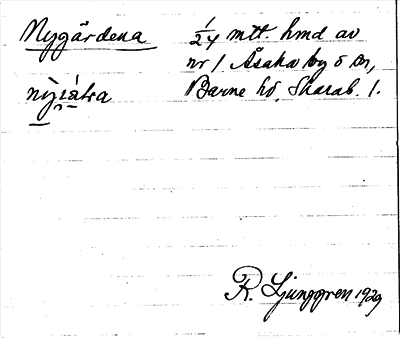 Nygärdena 1/24 mtt. hmd av
nr 1 Åsaka by o sn,
Barne hd, Skarab. l.
R. Ljunggren 1929